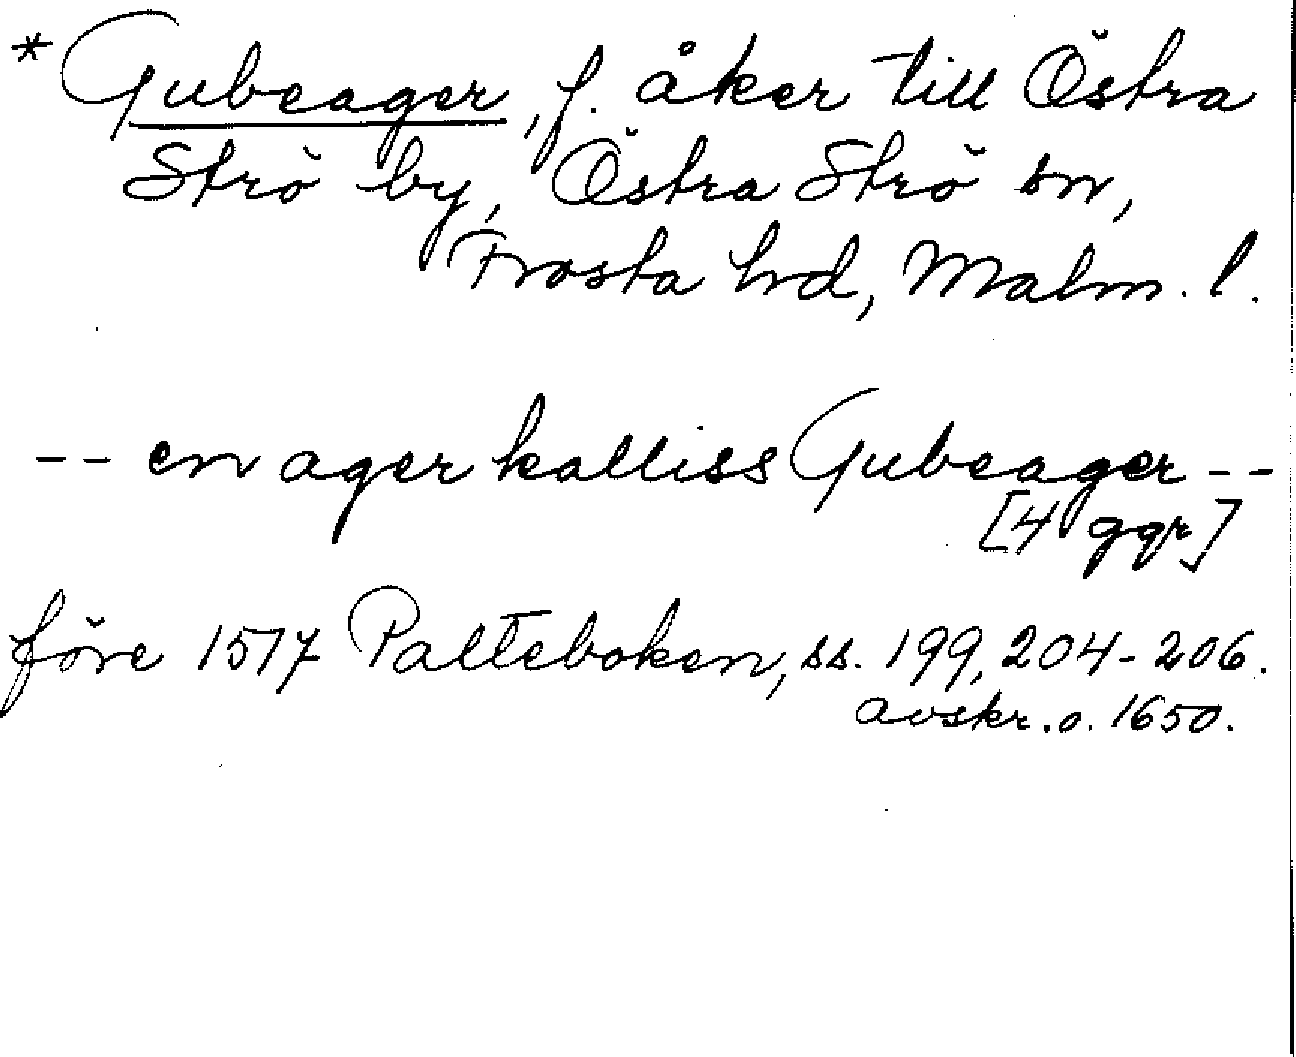 * Gubeager, f. åker till Östra
Strö by, Östra Strö sn,
Frosta hrd, Malm. l.
-- en ager kalliss Gubeager --
[4 ggr]
före 1517 Palteboken, ss. 199, 204-206.
avskr. o. 1650.